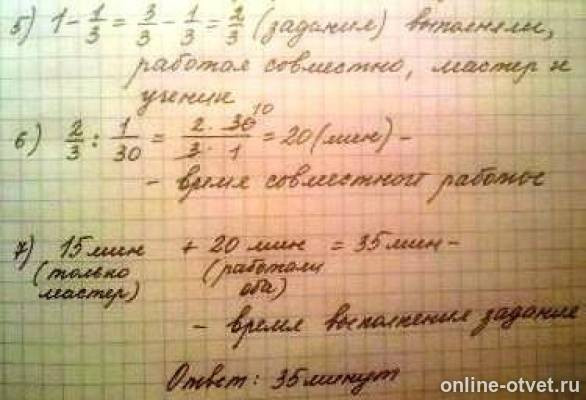 5) 1 - 1/3 = 3/3 - 1/3 = 2/3 (задания) выполняли,
работая совместно, мастер и
ученик
6) 2/3 : 1/30 = 2 · 30 10 / 3 · 1 = 20 (мин) -
- время совместной работы
7) 15 мин + 20 мин = 35 мин -
(только мастер) (работали оба)
- время выполнения задание
Ответ: 35 минут
online-otvet.ru